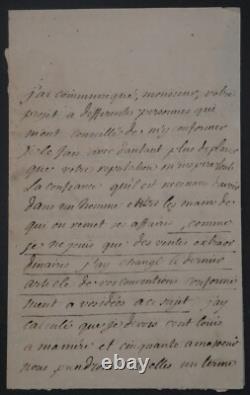 j'ai communiqué, monsieur, votre
projet à differentes personnes qui
mont conseillés de m'y conformer
je le fais avec d'autant plus de plaisir
que votre reputation en inspire toute
la confiance quil est necessaire d'avoir
dans un homme entre les mains de
qui on remet ses affaires, comme
je ne jouis que des rentes extraor
dinaires j'ay changé le dernier
article de vos conventions conforme
ment a vos idées a ce sujet, j'ay
calculé que je dois cent louis
a ma mere et cinquante a ma soeur
nous prendrons pour elles un terme